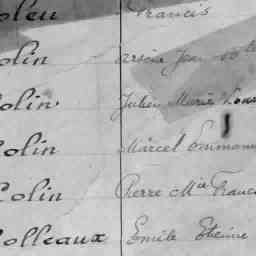 oleu Francis
olin Jean
Colin Julien Marie Louis
olin Marcel Emmanu
Colin Pierre Mie Franc
olleaux Emile Etienne